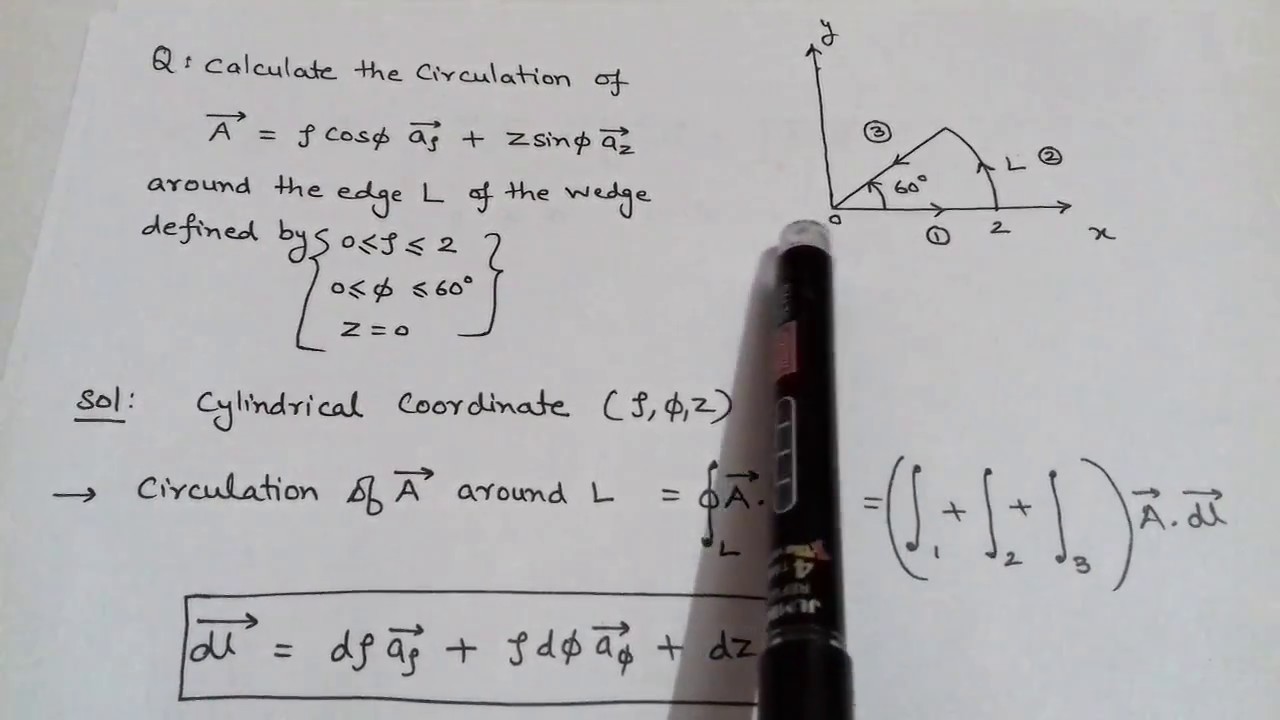 Q: Calculate the Circulation of
A⃗ = ρ cosϕ a⃗ρ + z sinϕ a⃗z
around the edge L of the wedge
defined by { 0 ≤ ρ ≤ 2
0 ≤ ϕ ≤ 60°
z = 0 }
y
③
L ②
60°
0
①
2
x
Sol: Cylindrical Coordinate (ρ, ϕ, z)
→ Circulation of A⃗ around L = ∮L A⃗ . = (∫1 + ∫2 + ∫3) A⃗ . dl⃗
dl⃗ = dρ a⃗ρ + ρ dϕ a⃗ϕ + dz
4